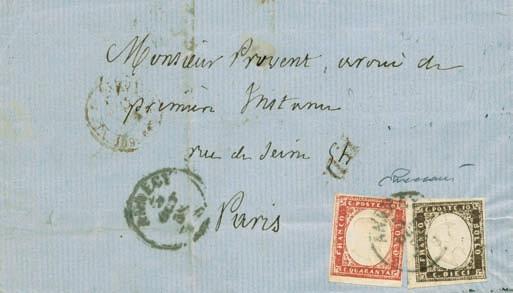 Monsieur Provent, avoué de
première Instance
rue de Seine 54
Paris
ANNECY
ANNECY
C. POSTE 40
FRANCO
BOLLO
C. QUARANTA
C. POSTE 10
FRANCO
BOLLO
C. DIECI